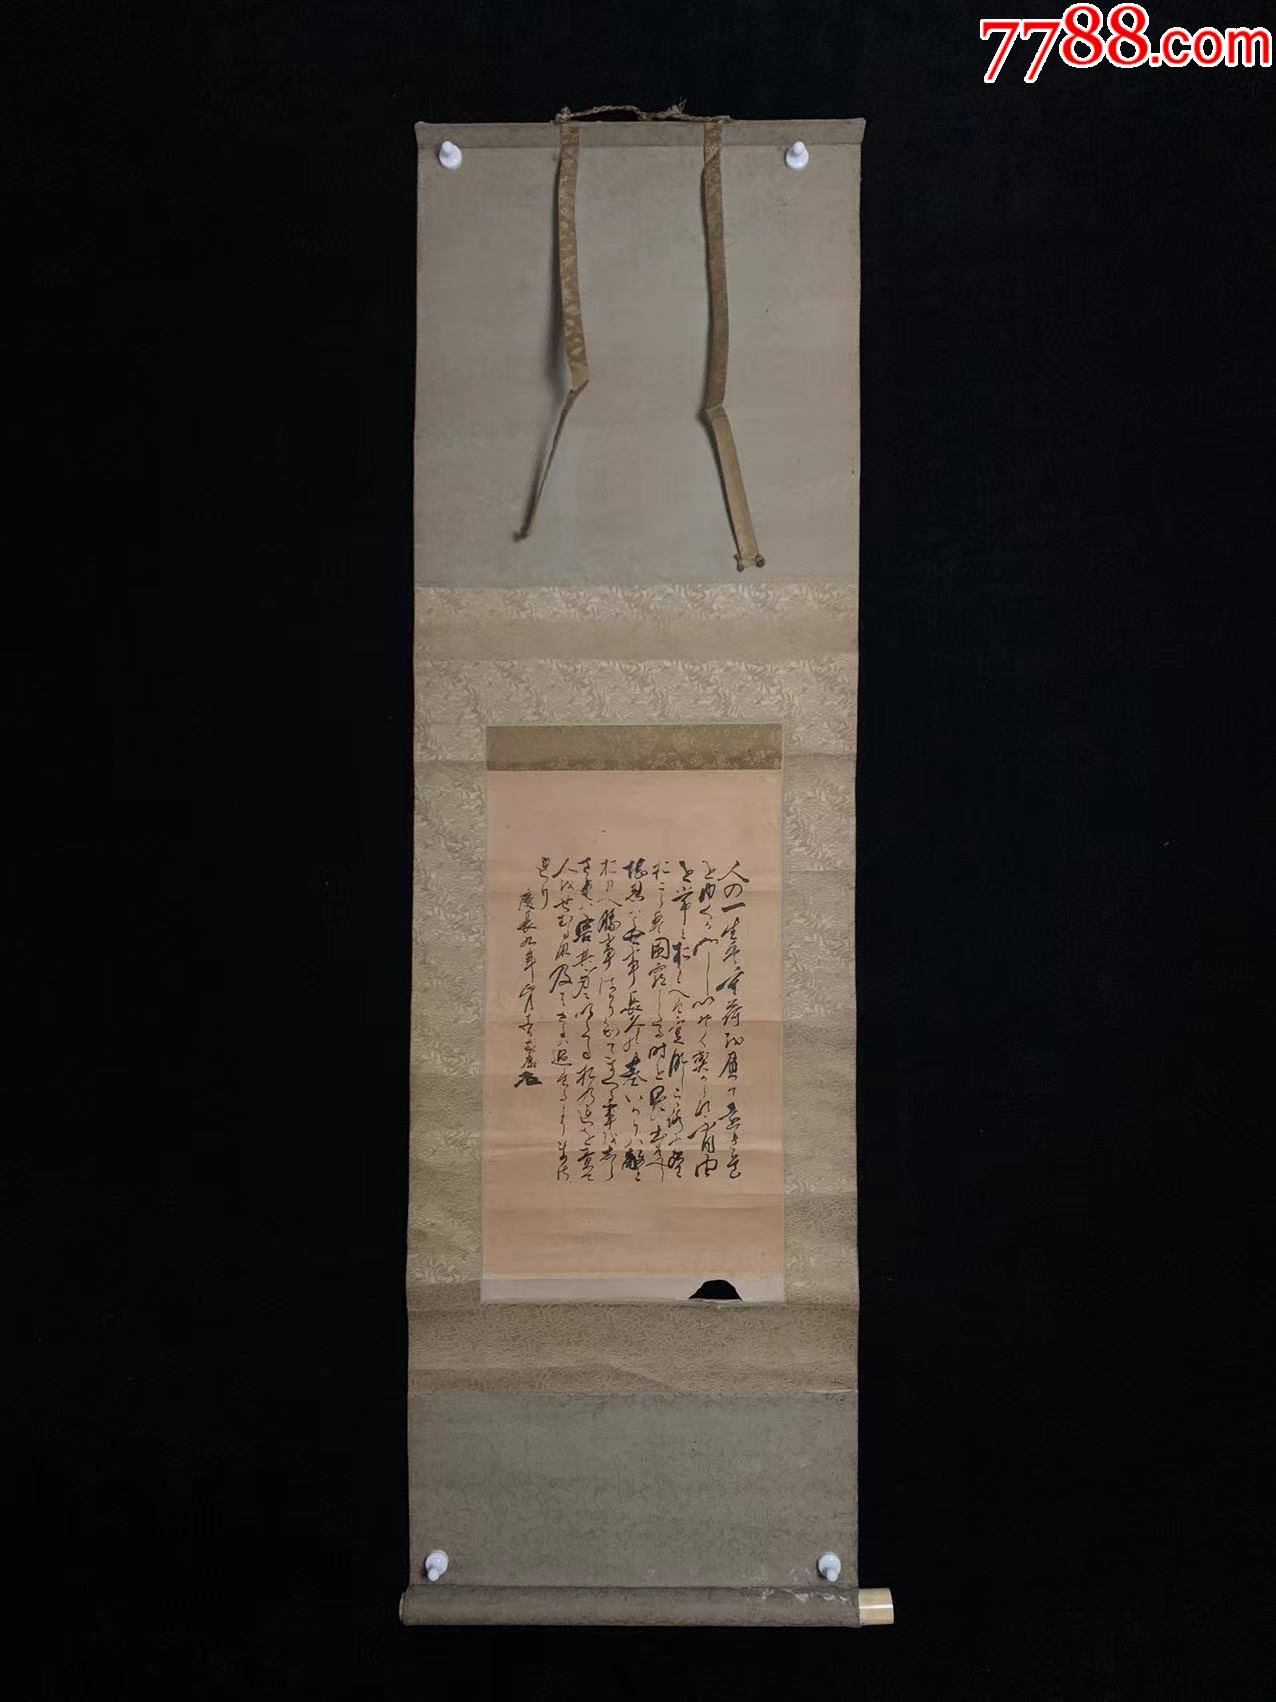 7788.com
人の一生は重荷を負て遠き道
をゆくか如しいそくへからす不自由
を常とおもへは不足なしこゝろに望
おこらは困窮したる時を思ひ出すへし
堪忍は無事長久の基いかりは敵と
おもへ勝事はかり知てまくる事をしら
されは害其身にいたるおのれを責て
人をせむるな及はさるは過たるよりまさ
れり
慶長九年正月十五日家康